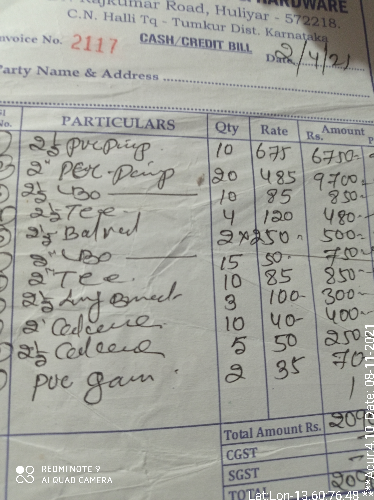 HARDWARE
Rajkumar Road, Huliyar - 572218.
C.N. Halli Tq - Tumkur Dist. Karnataka
Invoice No. 2117 CASH/CREDIT BILL Date 2/4/21
Party Name & Address
Sl No. PARTICULARS Qty Rate Amount Rs. P
2½ 10 675 6750-
2" 20 485 9700-
2½ 10 85 850-
2½ Tee 4 120 480-
2½ 2 × 250- 500-
2" 15 50- 750-
2" Tee 10 85 850-
2½ 3 100- 300-
2" 10 40- 400-
2½ 5 50 250
pvc gam 2 35 70
Total Amount Rs. 209
CGST
SGST
TOTAL 209
REDMI NOTE 9
AI QUAD CAMERA
**Acur 4.10 Date: 08-11-2021
Lat,Lon-13.60,76.48 **